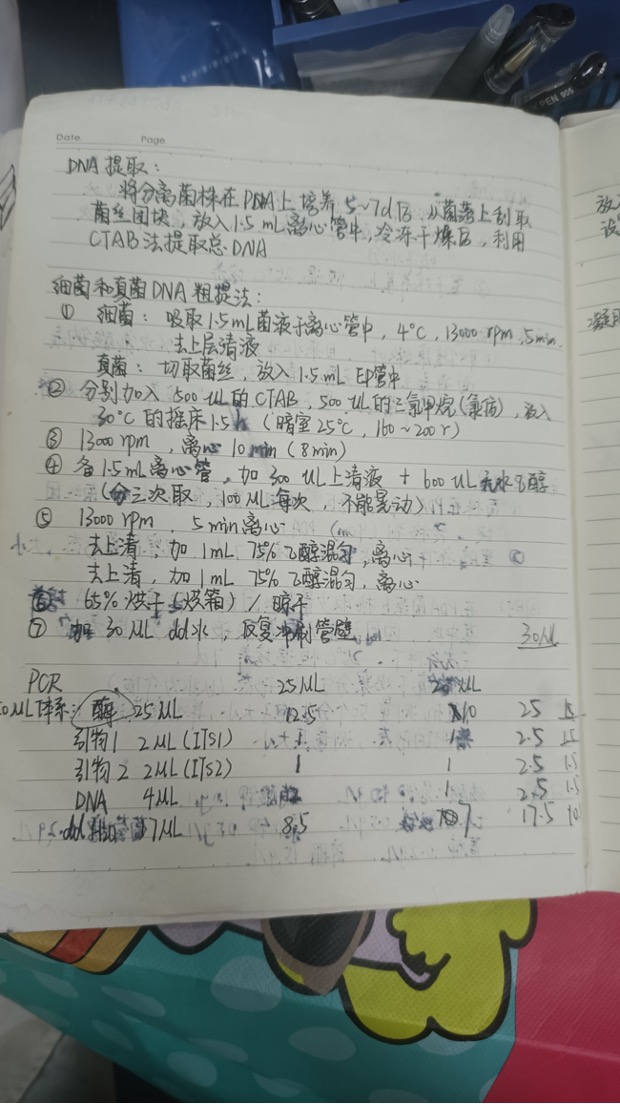 PEN 905
Date Page
DNA 提取：
将分离菌株在 PDA上培养 5~7d后，从菌落上刮取
菌丝团块，放入1.5 mL 离心管中，冷冻干燥后，利用
CTAB 法提取总 DNA
细菌和真菌DNA 粗提法：
① 细菌：吸取1.5mL菌液于离心管中，4℃，13000 rpm，5min，
去上层清液
真菌：切取菌丝，放入1.5 mL EP管中
② 分别加入 500 UL的CTAB，500 UL的三氯甲烷(氯仿)，放入
30℃的摇床1.5h (暗室25℃，160~200r)
③ 13000 rpm，离心10 min (8min)
④ 备1.5mL离心管，加 300 UL上清液 + 600 UL无水乙醇
(分三次取，100 ML每次，不能晃动)
⑤ 13000 rpm，5 min离心
去上清，加 1mL 75%乙醇混匀，离心
去上清，加 1 mL 75%乙醇混匀，离心
65% 烘干 (烘箱) / 晾干
⑦ 加 30 ML dd水，反复冲刷管壁 30ML
PCR 25ML ML
0ML体系：酶 25ML 12.5 10 25 15
引物1 2ML (ITS1) 1 1 2.5 1.5
引物2 2ML (ITS2) 1 1 2.5 1.5
DNA 4ML 1 2.5 1.5
17ML 8.5 7 17.5 10